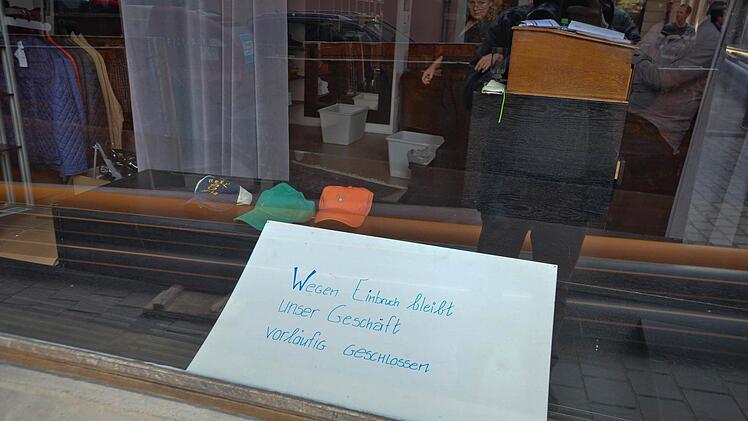 Wegen Einbruch bleibt
unser Geschäft
vorläufig geschlossen